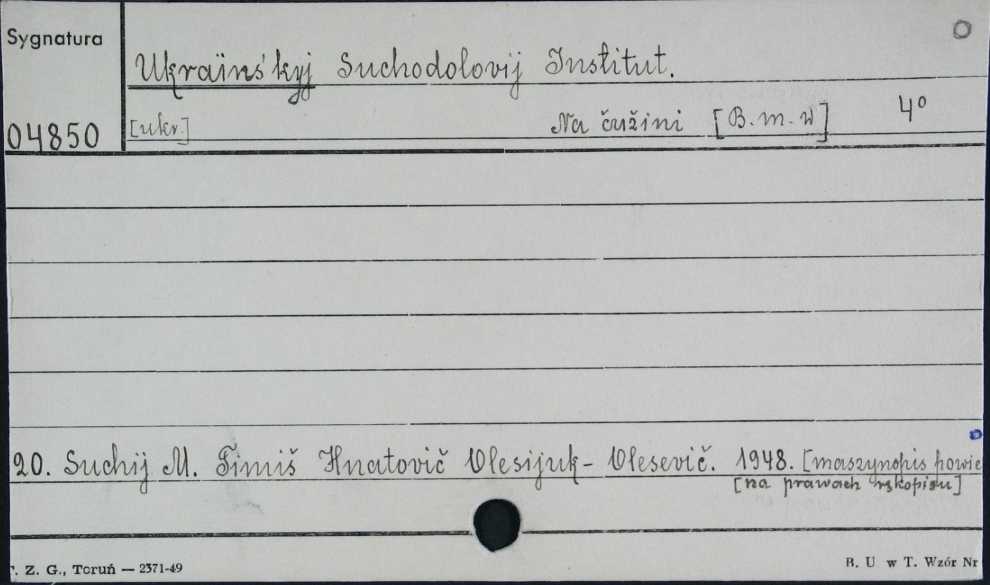 Sygnatura
Ukraïnśkyj Suchodolovij Institut.
04850
[ukr.] Na čužini [B.m.w] 4°
20. Suchij M. Timiš Hnatovič Olesijuk-Olesevič. 1948. [maszynopis powie
[na prawach rękopisu]
. Z. G., Toruń — 2371-49
B. U w T. Wzór Nr